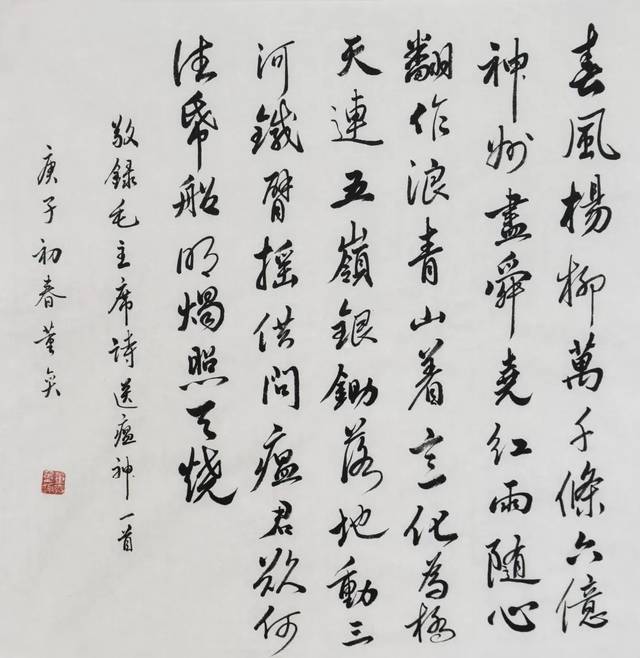 春風楊柳萬千條六億
神州盡舜堯紅雨隨心
翻作浪青山着意化為橋
天連五嶺銀鋤落地動三
河鐵臂搖供問瘟君欲何
往帋船明燭照天燒
敬録毛主席詩送瘟神一首
庚子初春董奕